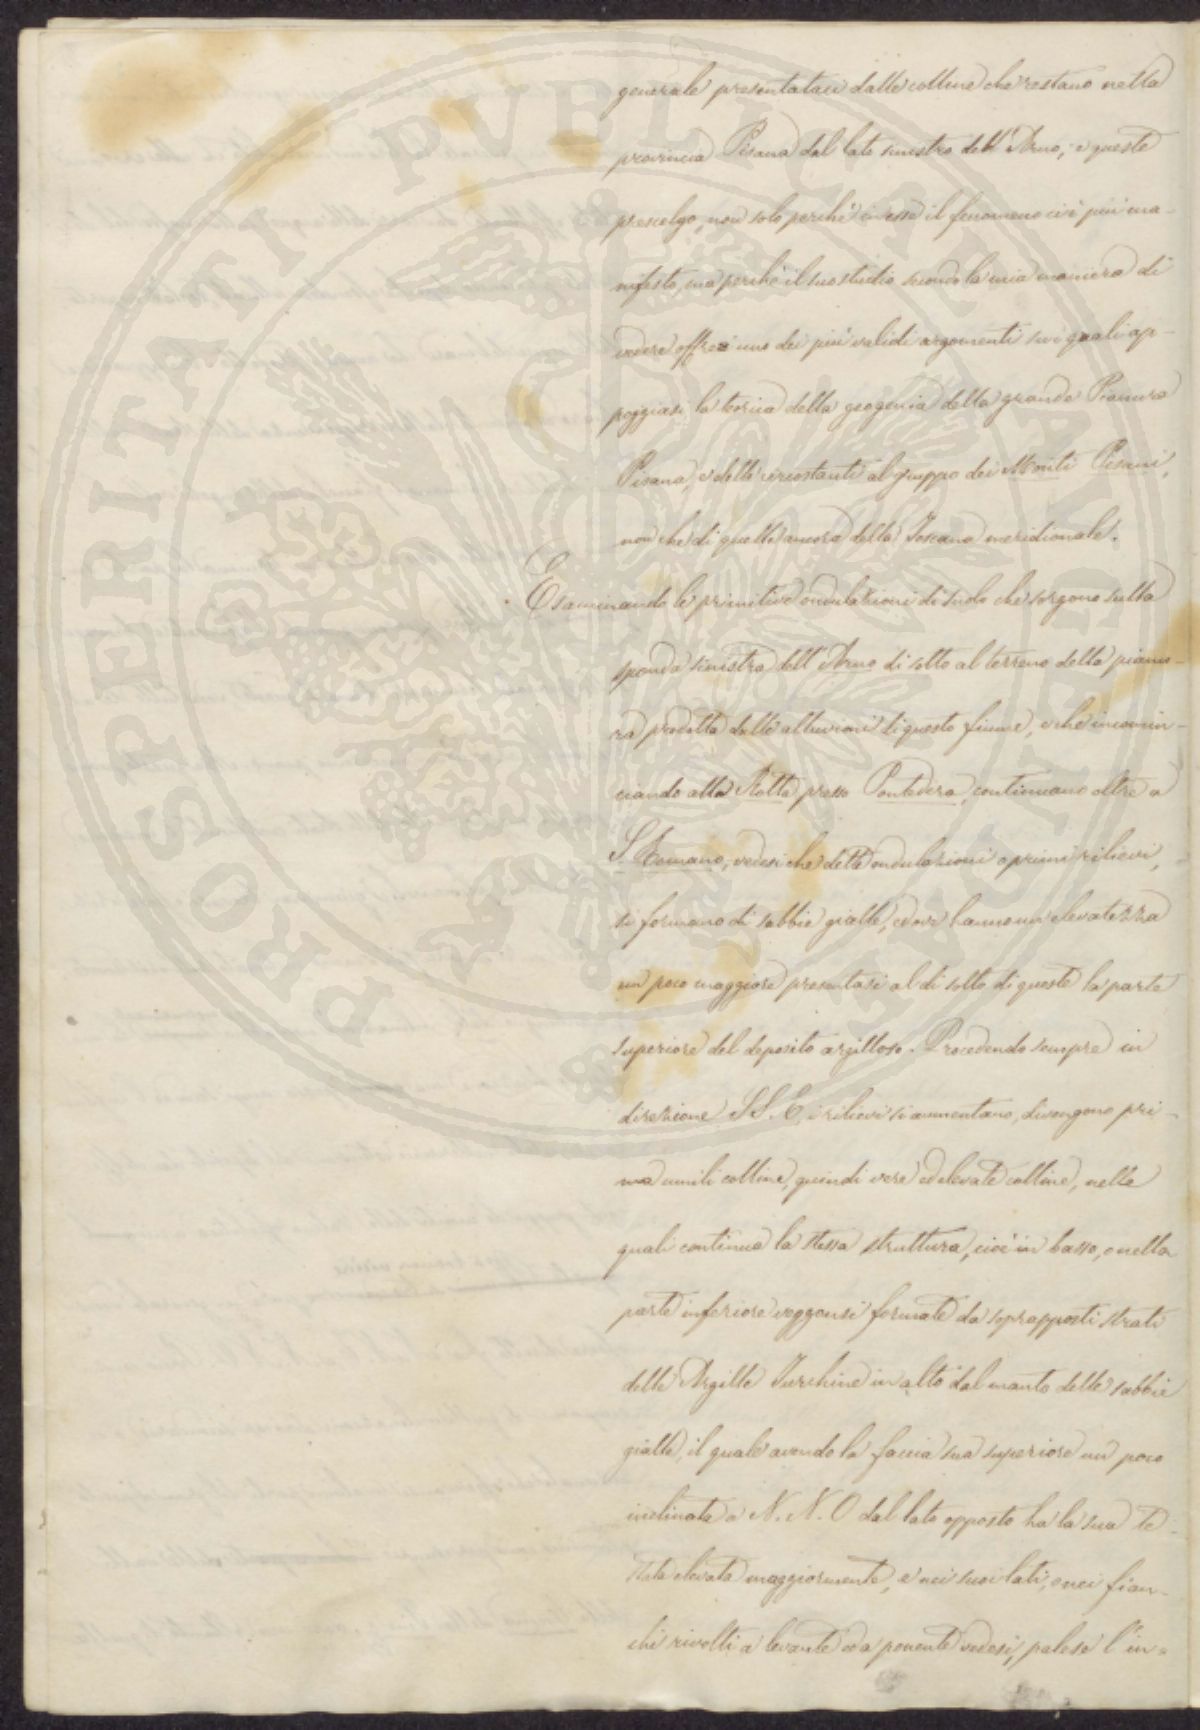 generale presentataci dalle colline che restano nella
provincia Pisana dal lato sinistro dell'Arno; e queste
prescelgo, non solo perchè in esse il fenomeno ci è più ma-
nifesto, ma perchè il suo studio secondo la mia maniera di
vedere offre uno dei più validi argomenti sui quali ap-
poggiasi la teorica della geogenia della grande Pianura
Pisana, e delle circostanti al gruppo dei Monti Pisani,
non che di quelle ancora della Toscana meridionale.
Esaminando le primitive ondulazioni di suolo che sorgono sulla
sponda sinistra dell'Arno di sotto al terreno della pianu-
ra prodotta dalle alluvioni di questo fiume, e che incomin-
ciando alla Rotta presso Pontedera, continuano oltre a
S. Romano, vedesi che dette ondulazioni o primi rilievi,
si formano di sabbie gialle, ed ove hanno un elevatezza
un poco maggiore presentasi al di sotto di queste la parte
superiore del deposito argilloso. Procedendo sempre in
direzione S.S.E, i rilievi si aumentano, divengono pri-
ma umili colline, quindi vere ed elevate colline, nelle
quali continua la stessa struttura, cioè in basso, o nella
parte inferiore veggonsi formate da soprapposti strati
delle Argille Turchine in alto dal manto delle sabbie
gialle, il quale avendo la faccia sua superiore un poco
inclinata a N.N.O dal lato opposto ha la sua te-
stata elevata maggiormente, e nei suoi lati, o nei fian-
chi rivolti a levante ed a ponente vedesi, palese l'in-
PROSPERITATI PVBLICAE AVGENDAE